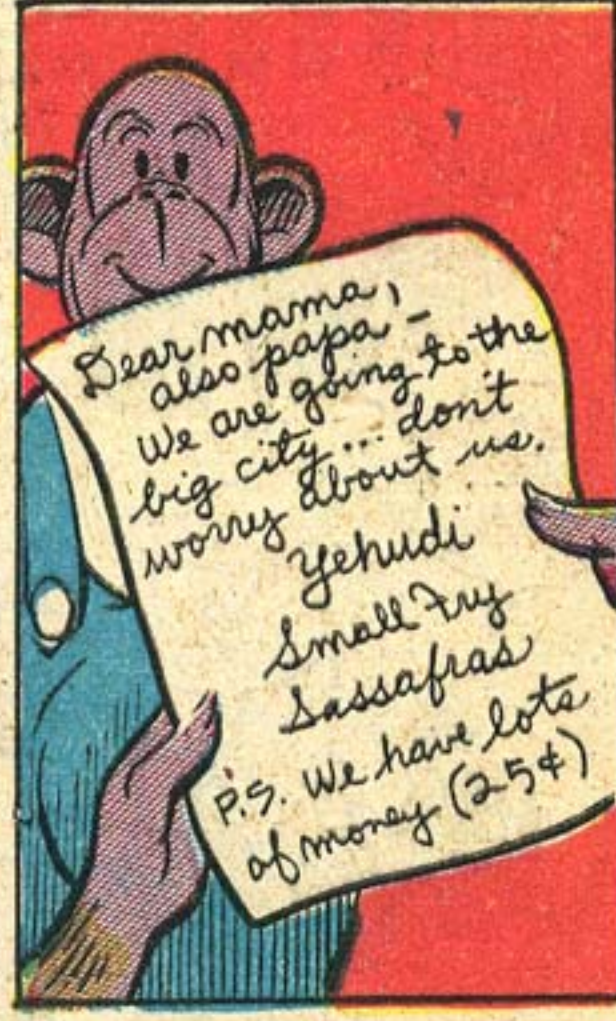 Dear mama,
also papa –
We are going to the
big city... don't
worry about us.
Yehudi
Small Fry
Sassafras
P.S. We have lots
of money (25¢)